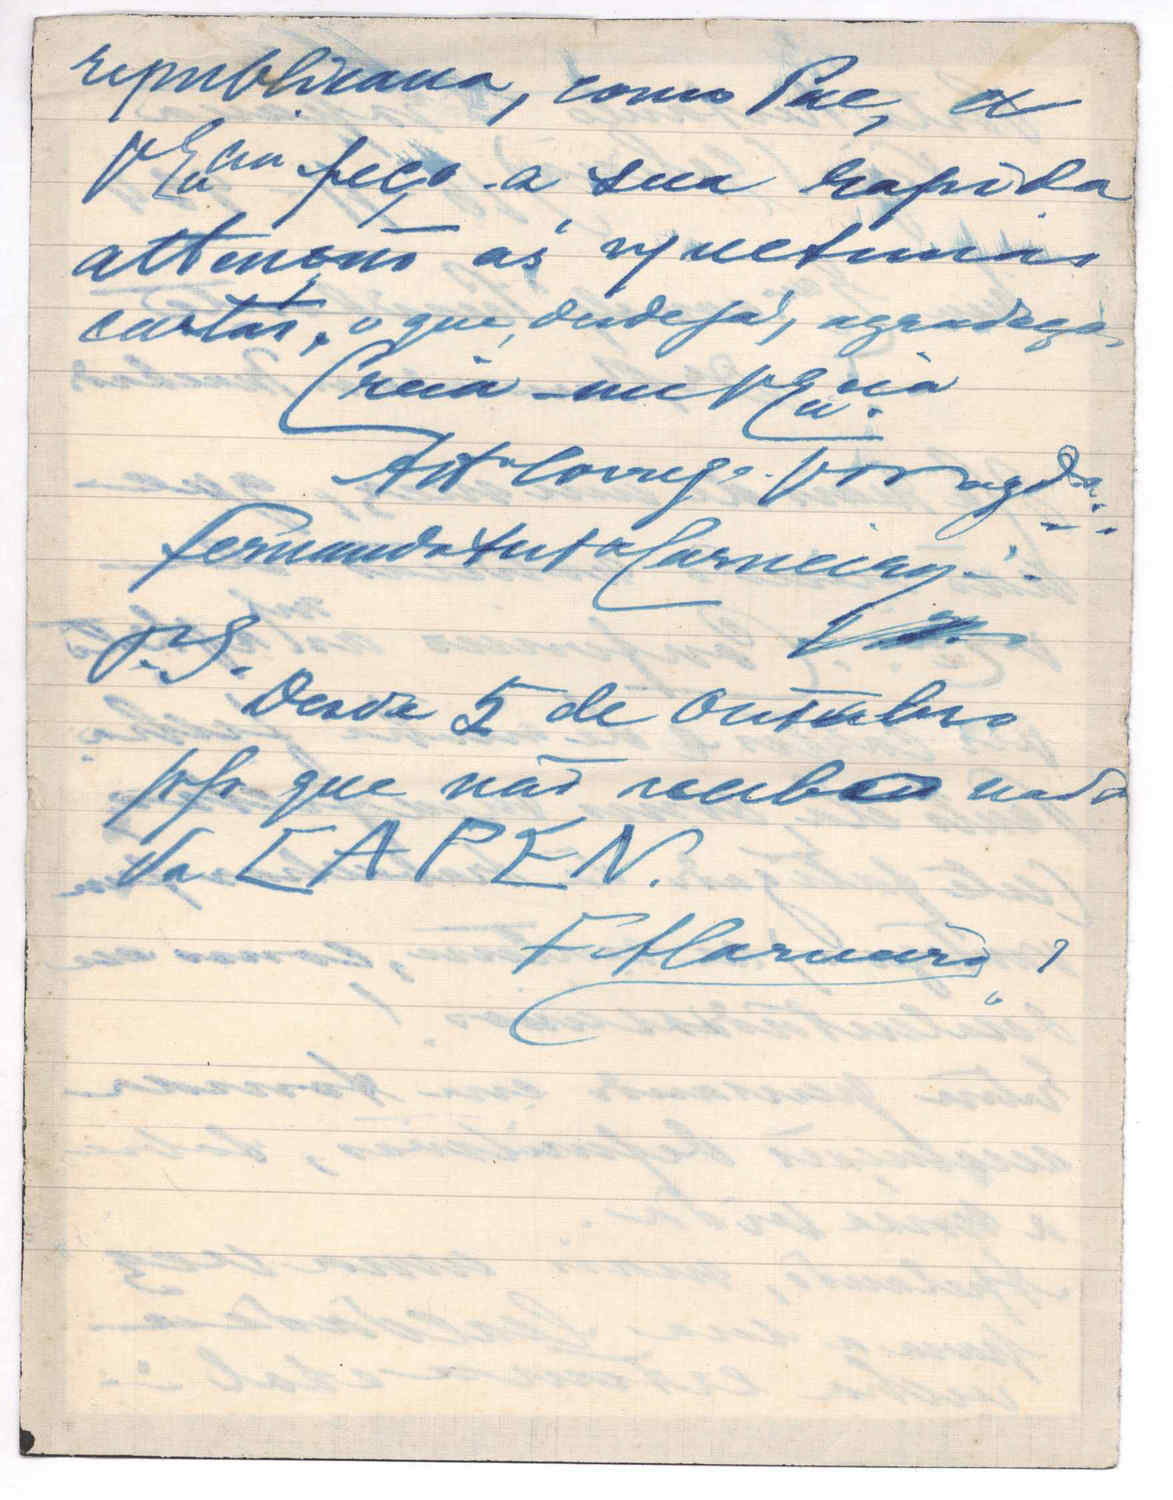 republicana, como Pae, a
V Excia peço a sua rapida
attenção ás
cartas, o que, desde já, agradeço,
Creia-me V Excia.
Att.º
Fernando Carneiro
P.S.
Desde 5 de Outubro
pfº que não recebo nada
da EAPEN.
F. Carneiro